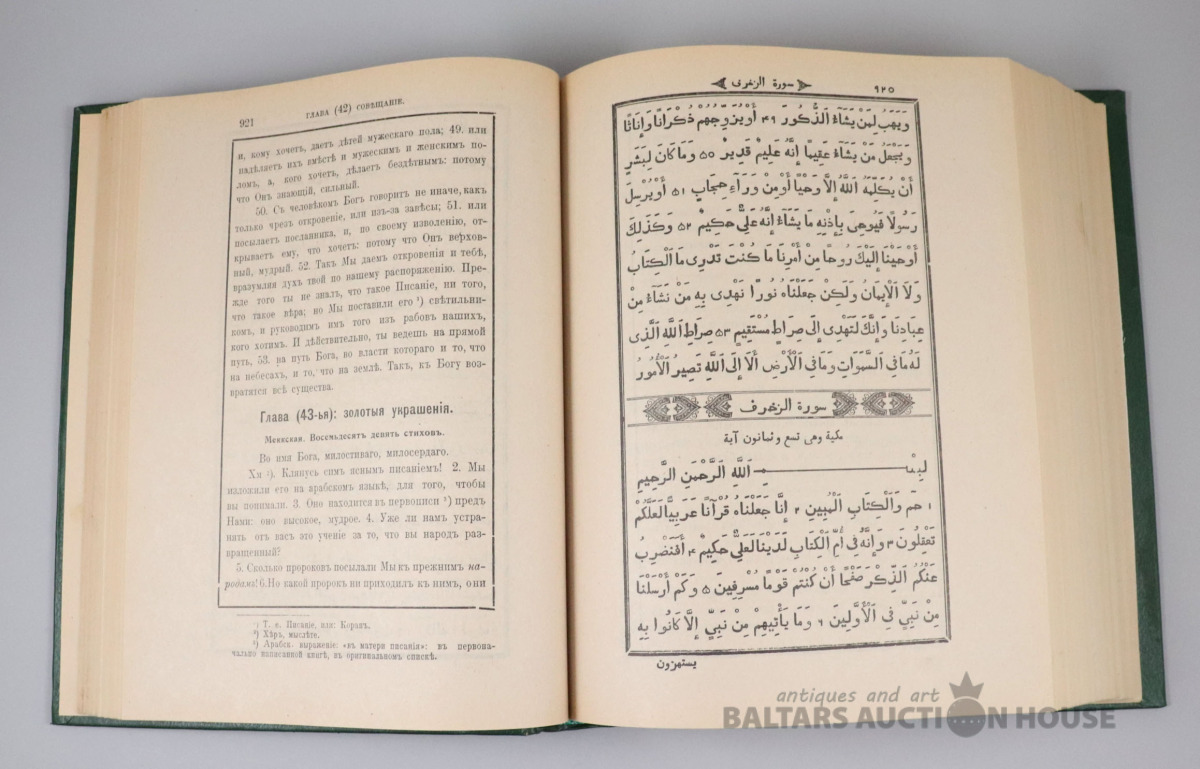 921
ГЛАВА (42) СОВѢЩАНІЕ.
и, кому хочетъ, даетъ дѣтей мужескаго пола; 49. или
надѣляетъ ихъ вмѣстѣ и мужескимъ и женскимъ по-
ломъ, а, кого хочетъ, дѣлаетъ бездѣтнымъ: потому
что Онъ знающій, сильный.
50. Съ человѣкомъ Богъ говоритъ не иначе, какъ
только чрезъ откровеніе, или изъ-за завѣсы; 51. или
посылаетъ посланника, и, по своему изволенію, от-
крываетъ ему, что хочетъ: потому что Онъ верхов-
ный, мудрый. 52. Такъ Мы даемъ откровенія и тебѣ,
вразумляя духъ твой по нашему распоряженію. Пре-
жде того ты не зналъ, что такое Писаніе, ни того,
что такое вѣра; но Мы поставили его ¹) свѣтильни-
комъ, и руководимъ имъ того изъ рабовъ нашихъ,
кого хотимъ. И дѣйствительно, ты ведешь на прямой
путь, 53. на путь Бога, во власти котораго и то, что
на небесахъ, и то, что на землѣ. Такъ, къ Богу воз-
вратятся всѣ существа.
Глава (43-ья): золотыя украшенія.
Меккская. Восемьдесятъ девять стиховъ.
Во имя Бога, милостиваго, милосердаго.
Хм ²). Клянусь симъ яснымъ писаніемъ! 2. Мы
изложили его на арабскомъ языкѣ, для того, чтобы
вы понимали. 3. Оно находится въ первописи ³) предъ
Нами: оно высокое, мудрое. 4. Уже ли намъ устра-
нять отъ васъ это ученіе за то, что вы народъ раз-
вращенный?
5. Сколько пророковъ посылали Мы къ прежнимъ на-
родамъ! 6. Но какой пророкъ ни приходилъ къ нимъ, они
¹) Т. е. Писаніе, или: Коранъ.
²) Хѣръ, мыслѣте.
³) Арабск. выраженіе: «въ матери писанія»: въ первона-
чально написанной книгѣ, въ оригинальномъ спискѣ.
سورة الزخرف
٩٢٥
وَيَهَبُ لِمَنْ يَشَآءُ الذُّكُورَ ٤٩ أَوْ يُزَوِّجُهُمْ ذُكْرَانًا وَإِنَاثًا
وَيَجْعَلُ مَنْ يَشَآءُ عَقِيمًا إِنَّهُ عَلِيمٌ قَدِيرٌ ٥٠ وَمَا كَانَ لِبَشَرٍ
أَنْ يُكَلِّمَهُ اللَّهُ إِلَّا وَحْيًا أَوْ مِنْ وَرَآءِ حِجَابٍ ٥١ أَوْ يُرْسِلَ
رَسُولًا فَيُوحِىَ بِإِذْنِهِ مَا يَشَآءُ إِنَّهُ عَلِىٌّ حَكِيمٌ ٥٢ وَكَذَلِكَ
أَوْحَيْنَا إِلَيْكَ رُوحًا مِنْ أَمْرِنَا مَا كُنْتَ تَدْرِى مَا الْكِتَابُ
وَلَا الْإِيمَانُ وَلَكِنْ جَعَلْنَاهُ نُورًا نَهْدِى بِهِ مَنْ نَشَآءُ مِنْ
عِبَادِنَا وَإِنَّكَ لَتَهْدِى إِلَى صِرَاطٍ مُسْتَقِيمٍ ٥٣ صِرَاطِ اللَّهِ الَّذِى
لَهُ مَا فِى السَّمَوَاتِ وَمَا فِى الْأَرْضِ أَلَا إِلَى اللَّهِ تَصِيرُ الْأُمُورُ
سورة الزخرف
مكية وهى تسع وثمانون آية
بِسْمِ اللَّهِ الرَّحْمَنِ الرَّحِيمِ
١ حم وَالْكِتَابِ الْمُبِينِ ٢ إِنَّا جَعَلْنَاهُ قُرْآنًا عَرَبِيًّا لَعَلَّكُمْ
تَعْقِلُونَ ٣ وَإِنَّهُ فِى أُمِّ الْكِتَابِ لَدَيْنَا لَعَلِىٌّ حَكِيمٌ ٤ أَفَنَضْرِبُ
عَنْكُمُ الذِّكْرَ صَفْحًا أَنْ كُنْتُمْ قَوْمًا مُسْرِفِينَ ٥ وَكَمْ أَرْسَلْنَا
مِنْ نَبِىٍّ فِى الْأَوَّلِينَ ٦ وَمَا يَأْتِيهِمْ مِنْ نَبِىٍّ إِلَّا كَانُوا بِهِ
يستهزون
antiques and art
BALTARS AUCTION HOUSE